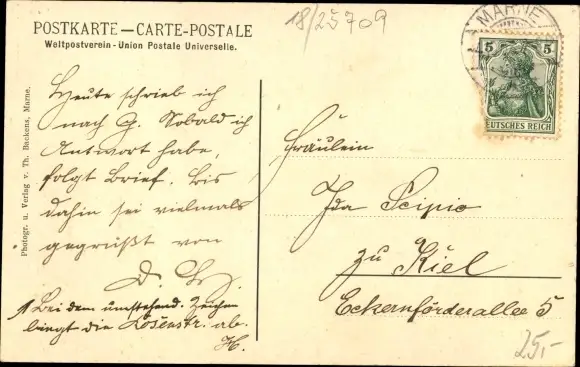 18/25709
POSTKARTE—CARTE-POSTALE
Weltpostverein-Union Postale Universelle.
MARNE
5 5
DEUTSCHES REICH
Photogr. u. Verlag v. Th. Backens, Marne.
Heute schrieb ich
nach G. Sobald ich
Antwort habe,
folgt Brief. Bis
dahin sei vielmals
gegrüßt von
D.
Bei dem umstehend. Zeichen
biegt die Losenstr. ab.
H.
Fräulein
Ida Scipio
zu Kiel
Eckernförderallee 5
25,-